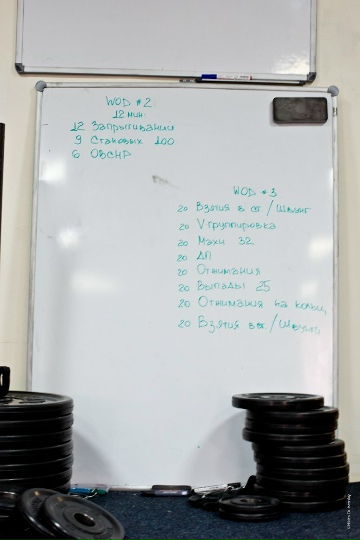 WOD #2
12 мин.
12 Запрыгиваний
9 Становых 100
6 ОВСНР
WOD #3
20 Взятия в ст / Швунг
20 V группировка
20 Махи 32
20 ДП
20 Отжимания
20 Выпады 25
20 Отжимания на кольц.
20 Взятия в ст / Швунг